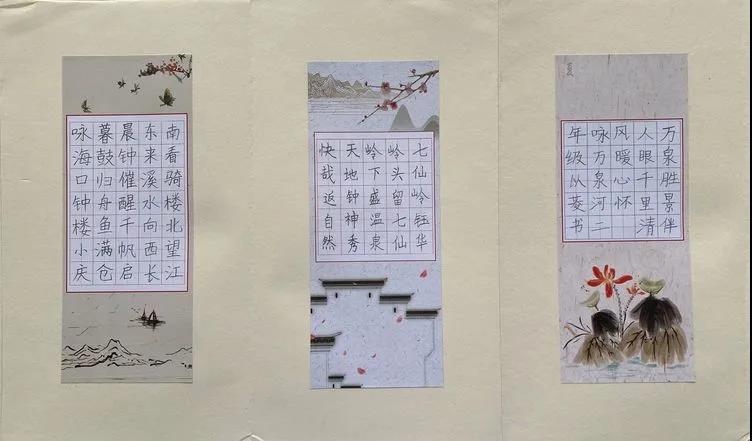 南看骑楼北望江
东来溪水向西长
晨钟催醒千帆启
暮鼓归舟鱼满仓
咏海口钟楼小庆
七仙岭钰华
岭头留七仙
岭下盛温泉
天地钟神秀
快哉返自然
万泉胜景伴
人眼千里清
风暖心怀
咏万泉河二
年级从菱书